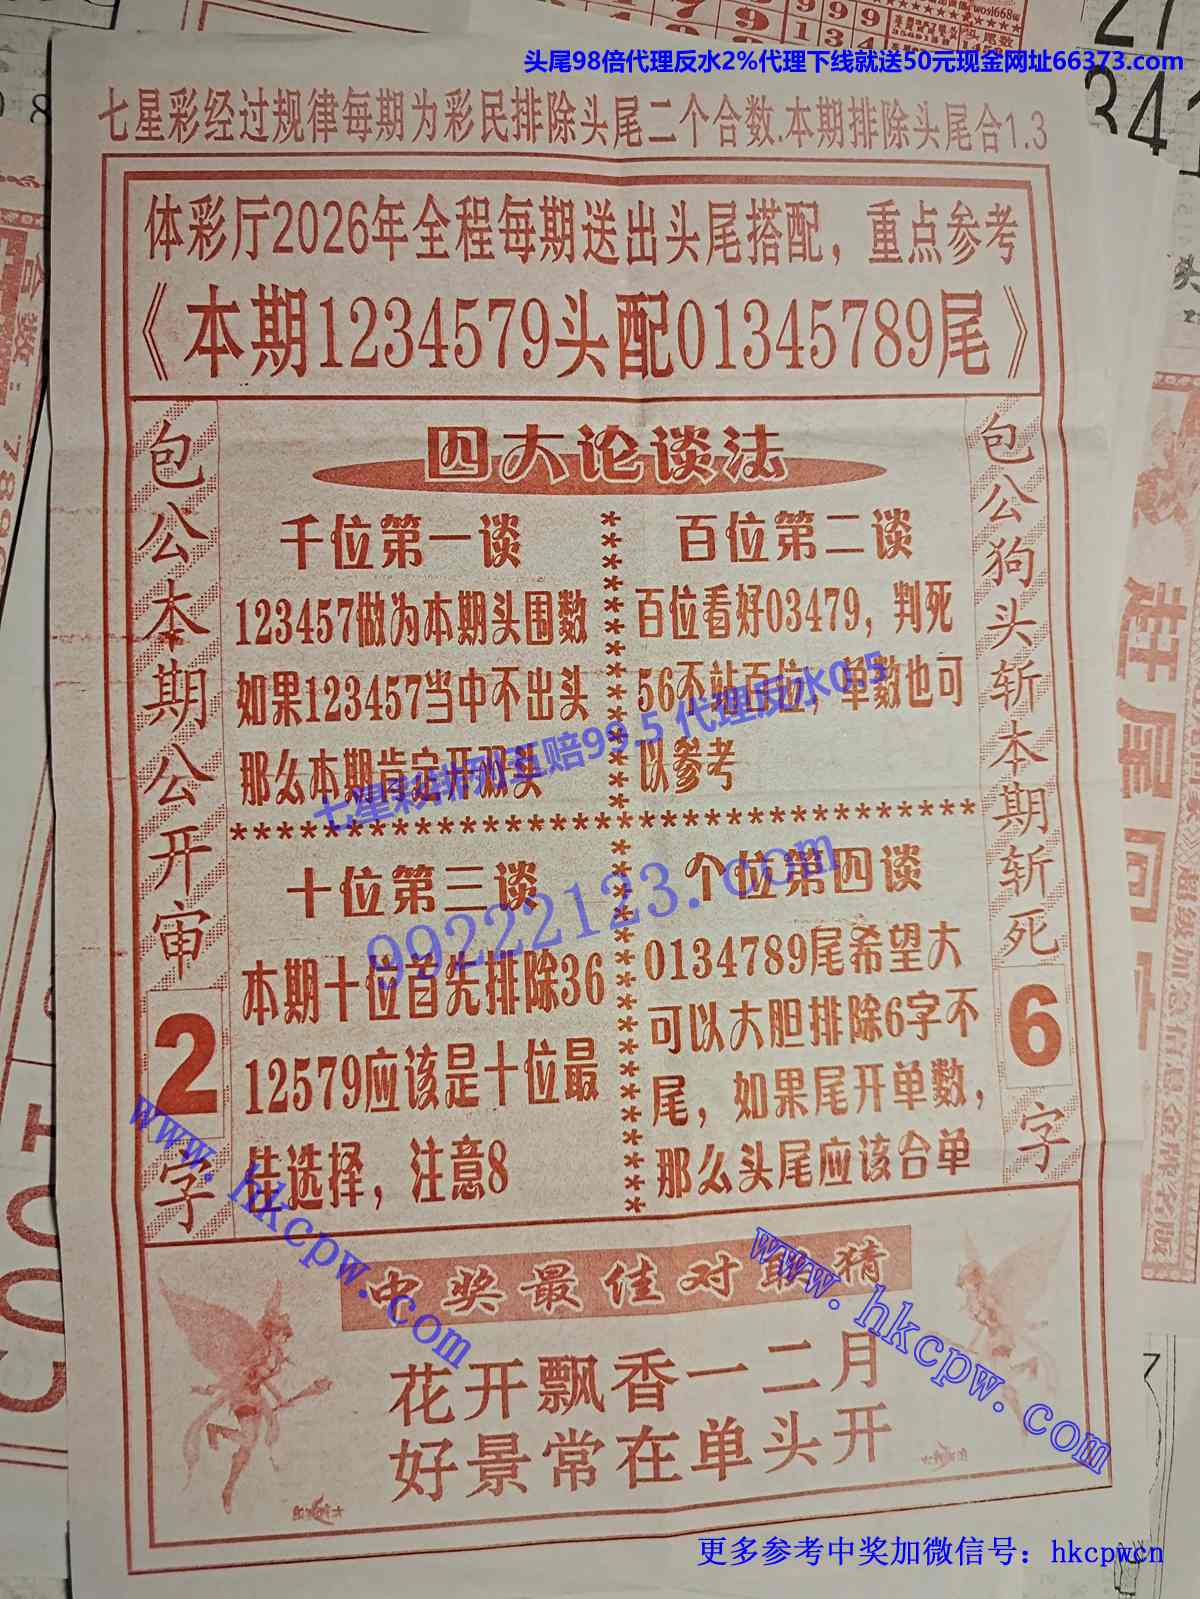 头尾98倍代理反水2%代理下线就送50元现金网址66373.com
七星彩经过规律每期为彩民排除头尾二个合数.本期排除头尾合1.3
体彩厅2026年全程每期送出头尾搭配，重点参考
《本期1234579头配01345789尾》
包公本期公开审2字
四大论谈法
千位第一谈
123457做为本期头围数
如果123457当中不出头
那么本期肯定开双头
百位第二谈
百位看好03479，判死
56不站百位，单数也可
以参考
********************************
十位第三谈
本期十位首先排除36
12579应该是十位最
佳选择，注意8
个位第四谈
0134789尾希望大
可以大胆排除6字不
尾，如果尾开单数，
那么头尾应该合单
包公狗头斩本期斩死6字
七星彩排列五赔99.5 代理反水0.5
99222123.com
中奖最佳对联猜
花开飘香一二月
好景常在单头开
www.hkcpw.com
www.hkcpw.com
更多参考中奖加微信号：hkcpwcn